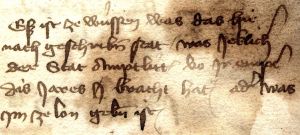 Es ist ze wissen was das hie
nach geschriben stat was jeklich
der Stat Amptlüt
des Jares Jn bracht hat ode was
Jm ze lon geben ist